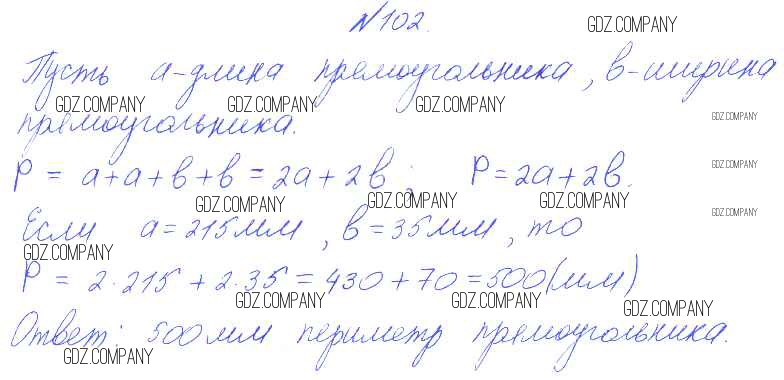 №102.
GDZ.COMPANY
Пусть a-длина прямоугольника, b-ширина
GDZ.COMPANY GDZ.COMPANY GDZ.COMPANY
прямоугольника.
GDZ.COMPANY
P = a+a+b+b=2a+2b; P=2a+2b.
GDZ.COMPANY
GDZ.COMPANY GDZ.COMPANY GDZ.COMPANY
Если a=215мм, b=35мм, то
GDZ.COMPANY
GDZ.COMPANY
P = 2·215+2·35=430+70=500(мм)
GDZ.COMPANY GDZ.COMPANY GDZ.COMPANY
Ответ: 500мм периметр прямоугольника.
GDZ.COMPANY